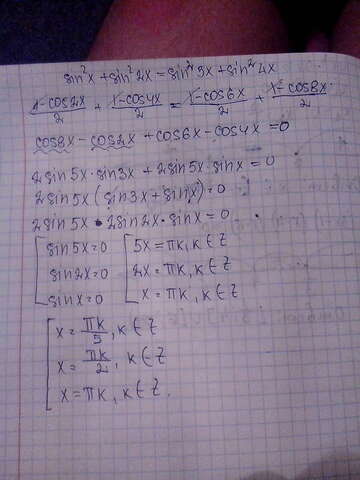 sin²x + sin²2x = sin²3x + sin²4x
1-cos2x/2 + 1-cos4x/2 = 1-cos6x/2 + 1-cos8x/2
cos8x - cos2x + cos6x - cos4x = 0
2sin5x·sin3x + 2sin5x·sinx = 0
2sin5x(sin3x + sinx) = 0
2sin5x · 2sin2x · sinx = 0
[ sin5x = 0 [ 5x = πk, k ∈ Z
sin2x = 0 2x = πk, k ∈ Z
sinx = 0 x = πk, k ∈ Z
[ x = πk/5, k ∈ Z
x = πk/2, k ∈ Z
x = πk, k ∈ Z.